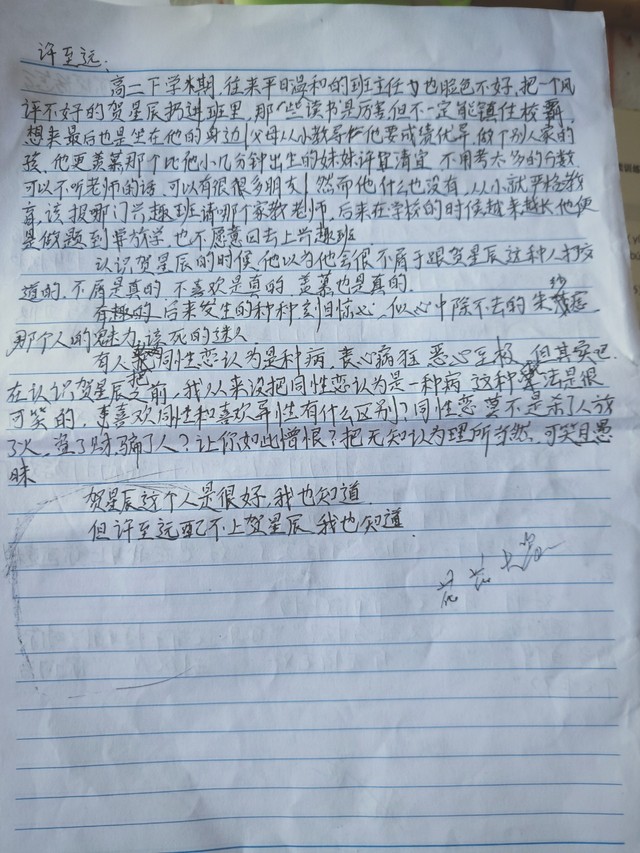 许至远:
高二下学期,往来平日温和的班主任也脸色不好,把一个风
评不好的贺星辰扔进班里,那些读书是厉害但不一定能镇住校霸
想来最后也是坐在他的身边,父母从小教导他要成绩优异,做个别人家的
孩,他更羡慕那个比他小几分钟出生的妹妹许清宜 不用考太多的分数
可以不听老师的话,可以有很很多朋友,然而他什么也没有,从小就严格教
育,该报哪门兴趣班请哪个家教老师,后来在学校的时候越来越长他便
是做题到放学,也不愿意回去上兴趣班
认识贺星辰的时候,他以为他会很不屑于跟贺星辰这种人打交
道的,不屑是真的,不喜欢是真的 羡慕也是真的.
有趣的,后来发生的种种刻目惊心,似心中除不去的朱砂痣
那个人的魅力,该死的迷人
有人把同性恋认为是种病,丧心病狂 恶心至极,但其实
在认识贺星辰之前,我从来没把同性恋认为是一种病 这种算法是很
可笑的,喜欢同性和喜欢异性有什么区别?同性恋莫不是杀了人放
了火,骗了人?让你如此憎恨?把无知认为理所当然,可笑且愚
昧
贺星辰这个人是很好,我也知道
但许至远配不上贺星辰,我也知道.